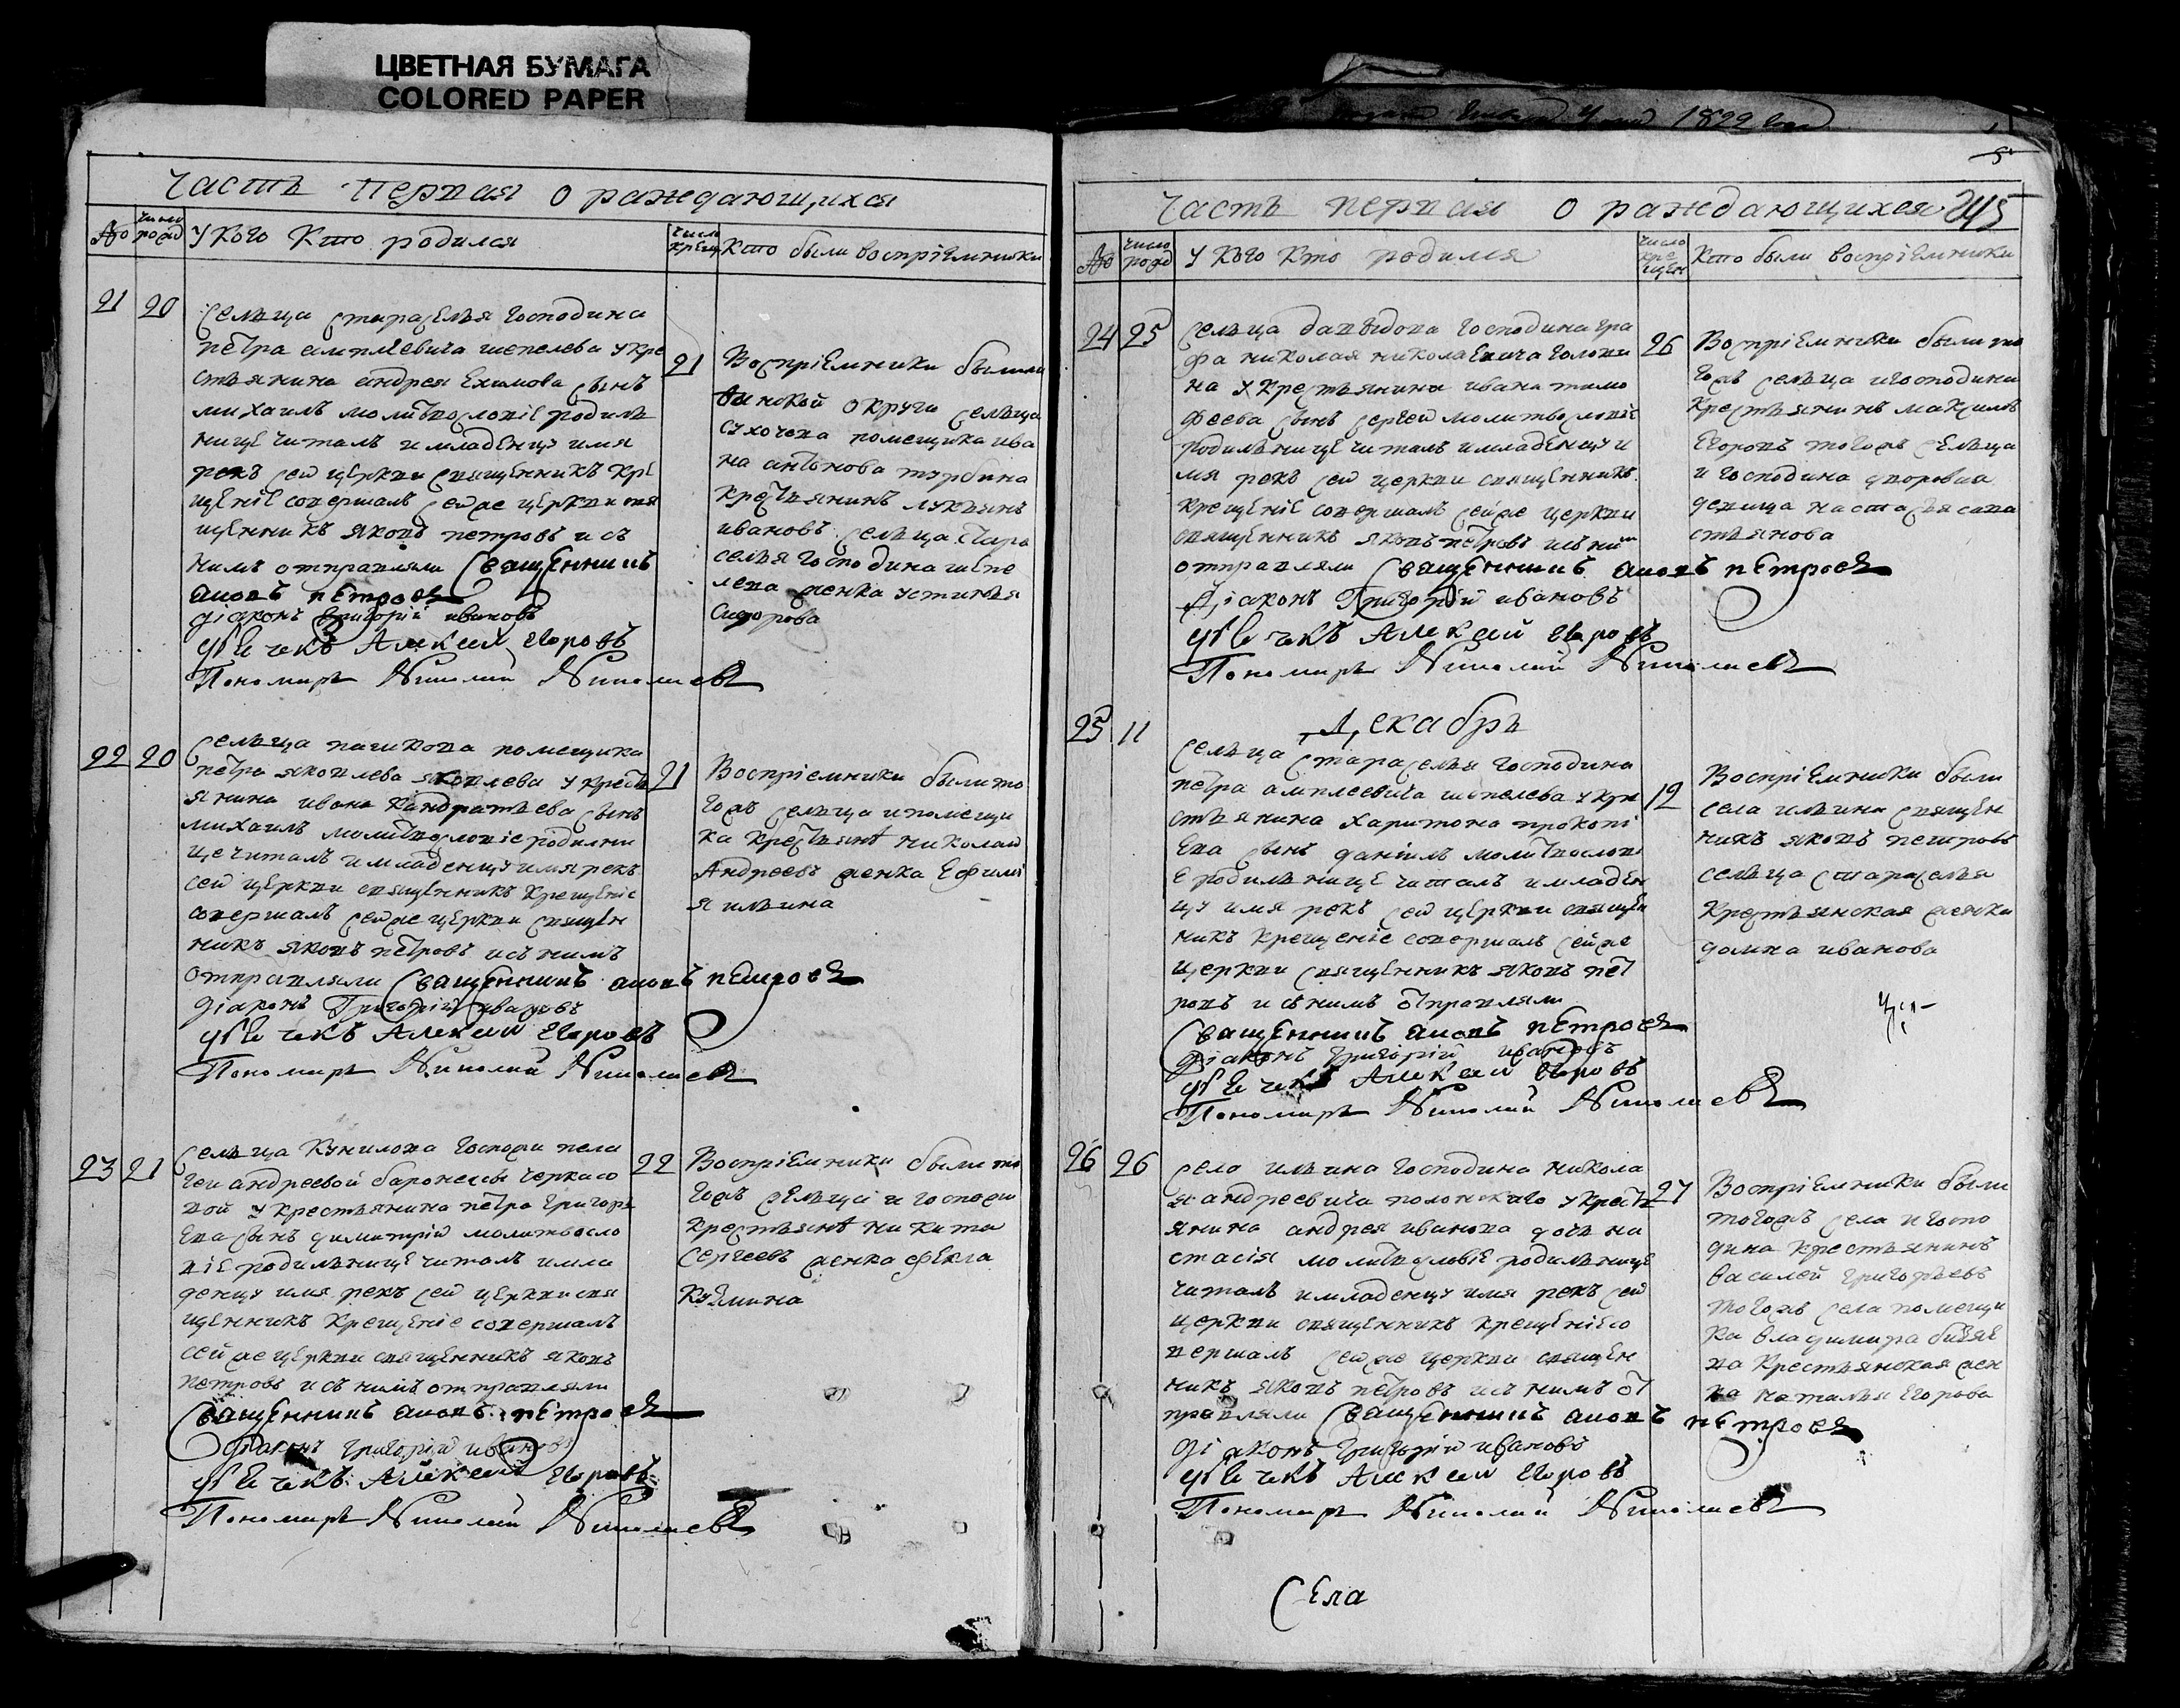 ЦВЕТНАЯ БУМАГА
COLORED PAPER
1822 года
Часть первая о раждающихся
№
число рожд
У кого кто родился
число крещ
Кто были воспріемники
21
20
Сельца староселья господина
петра амплеевича шепелева у кре
стьянина андрея Екимова сынъ
михаилъ молитвословіе родиль
ницѣ читалъ и младенцу имя
рекъ сей церкви священникъ кре
щеніе совершалъ сей же церкви свя
щенникъ яковъ петровъ и съ
нимъ отправляли Священникъ
яковъ петровъ
діаконъ Григорій ивановъ
дьячекъ Алексей Егоровъ
Пономарь Николай Николаевъ
21
Воспріемники были
округи сельца
сухочева помещика ива
на антонова турбина
крестьянинъ лукьянъ
ивановъ сельца Старо
селья господина шепе
лева женка устинья
Сидорова
22
20
Сельца пашкова помещика
петра яковлева яковлева у кресть
янина ивана кандратьева сынъ
михаилъ молитвословіе родилни
це читалъ и младенцу имя рекъ
сей церкви священникъ крещеніе
совершалъ сей же церкви священ
никъ яковъ петровъ и съ нимъ
отправляли Священникъ яковъ петровъ
діаконъ Григорій ивановъ
дьячекъ Алексей Егоровъ
Пономарь Николай Николаевъ
21
Воспріемники были то
гожъ сельца и помещи
ка крестьянъ николай
Андреевъ женка Ефимі
я ильина
23
21
Сельца Кунилова Госпожи пела
геи андреевой баронессы черкасо
вой у крестьянина петра Григорь
ева сынъ димитрій молитвосло
віе родильнице читалъ и мла
денцу имя рекъ сей церкви свя
щенникъ крещеніе совершалъ
сей же церкви священникъ яковъ
петровъ и съ нимъ отправляли
Священникъ яковъ петровъ
діаконъ Григорій ивановъ
дьячекъ Алексей Егоровъ
Пономарь Николай Николаевъ
22
Воспріемники были то
гожъ сельца и госпожи
крестьянъ никита
Сергеевъ женка фекла
Кузмина
Часть первая о раждающихся
245
№
число рожд
У кого кто родился
число крещен
Кто были воспріемники
24
25
Сельца давыдова господина гра
фа николая николаевича голови
на у крестьянина ивана тимо
феева сынъ сергей молитвословіе
родильнице читалъ и младенцу и
мя рекъ сей церкви священникъ
крещеніе совершалъ сей же церкви
священникъ яковъ петровъ и съ ним
отправляли Священникъ яковъ петровъ
Діаконъ Григорій ивановъ
дьячекъ Алексей Егоровъ
Пономарь Николай Николаевъ
26
Воспріемники были то
гожъ сельца и господина
крестьянинъ максимъ
Егоровъ тогожъ сельца
и господина дворовая
девица настасья сава
стьянова
Декабрь
25
11
Сельца Староселья господина
петра амплеевича шепелева у кре
стьянина харитона прокопі
ева сынъ даніилъ молитвослові
е родильнице читалъ и младен
цу имя рекъ сей церкви священ
никъ крещеніе совершалъ сей же
церкви священникъ яковъ пет
ровъ и съ нимъ отправляли
Священникъ яковъ петровъ
діаконъ Григорій ивановъ
дьячекъ Алексей Егоровъ
Пономарь Николай Николаевъ
12
Воспріемники были
села ильина священ
никъ яковъ петровъ
сельца староселья
крестьянская женка
домна иванова
26
26
Село ильина господина никола
я андреевича полонскаго у кресть
янина андрея иванова дочь на
стасія молитвословіе родильнице
читалъ и младенцу имя рекъ сей
церкви священникъ крещеніе со
вершалъ сей же церкви священ
никъ яковъ петровъ и съ нимъ от
правляли Священникъ яковъ петровъ
діаконъ Григорій ивановъ
дьячекъ Алексей Егоровъ
Пономарь Николай Николаевъ
27
Воспріемники были
тогожъ села и госпо
дина крестьянинъ
василей григорьевъ
тогожъ села помещи
ка владимира
ва крестьянская жен
ка наталья Егорова
Села